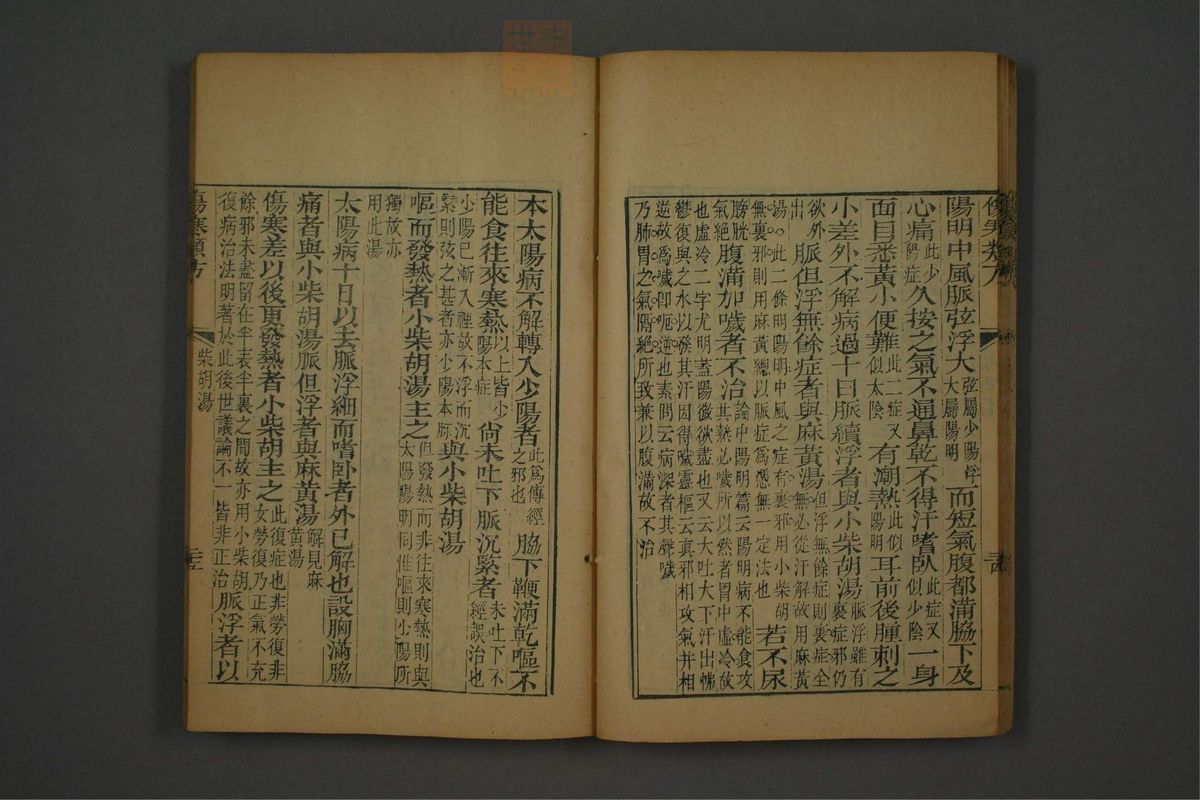 傷寒類方
陽明中風脈弦浮大弦屬少陽浮大屬陽明而短氣腹都滿脇下及
心痛此少陽症久按之氣不通鼻乾不得汗嗜卧此症又似少陰一身
面目悉黃小便難此二症又似太陰有潮熱此似陽明耳前後腫刺之
小差外不解病過十日脈續浮者與小柴胡湯脈浮雖有裏症邪仍
欲外出脈但浮無餘症者與麻黃湯但浮無餘症則裏症全
無必從汗解故用麻黃
湯。此二條明陽明中風之症有裏邪用小柴胡
無裏邪則用麻黃總以脈症為憑無一定法也若不尿
腹滿加噦者不治論中陽明篇云陽明病不能食攻
其熱必噦所以然者胃中虛冷故
也虛冷二字尤明蓋陽微欲盡也又云大吐大下汗出怫
鬱復與之水以發其汗因得噦靈樞云真邪相攻氣并相
逆故為噦即呃逆也素問云病深者其聲噦
乃肺胃之氣隔絕所致兼以腹滿故不治
本太陽病不解轉入少陽者此為傳經之邪也脇下鞕滿乾嘔不
能食往來寒熱以上皆少陽本症尚未吐下脈沉緊者未吐下不經誤治也
少陽已漸入裡故不浮而沉
緊則弦之甚者亦少陽本脈與小柴胡湯
嘔而發熱者小柴胡湯主之但發熱而非往來寒熱則與
太陽陽明同惟嘔則少陽所
獨故亦用此湯
太陽病十日以去脈浮細而嗜卧者外已解也設胸滿脇
痛者與小柴胡湯脈但浮者與麻黃湯解見麻黃湯
傷寒差以後更發熱者小柴胡主之此復症也非勞復非
女勞復乃正氣不充
餘邪未盡留在半表半裏之間故亦用小柴胡
復病治法明著於此後世議論不一皆非正治脈浮者以
傷寒類方
柴胡湯